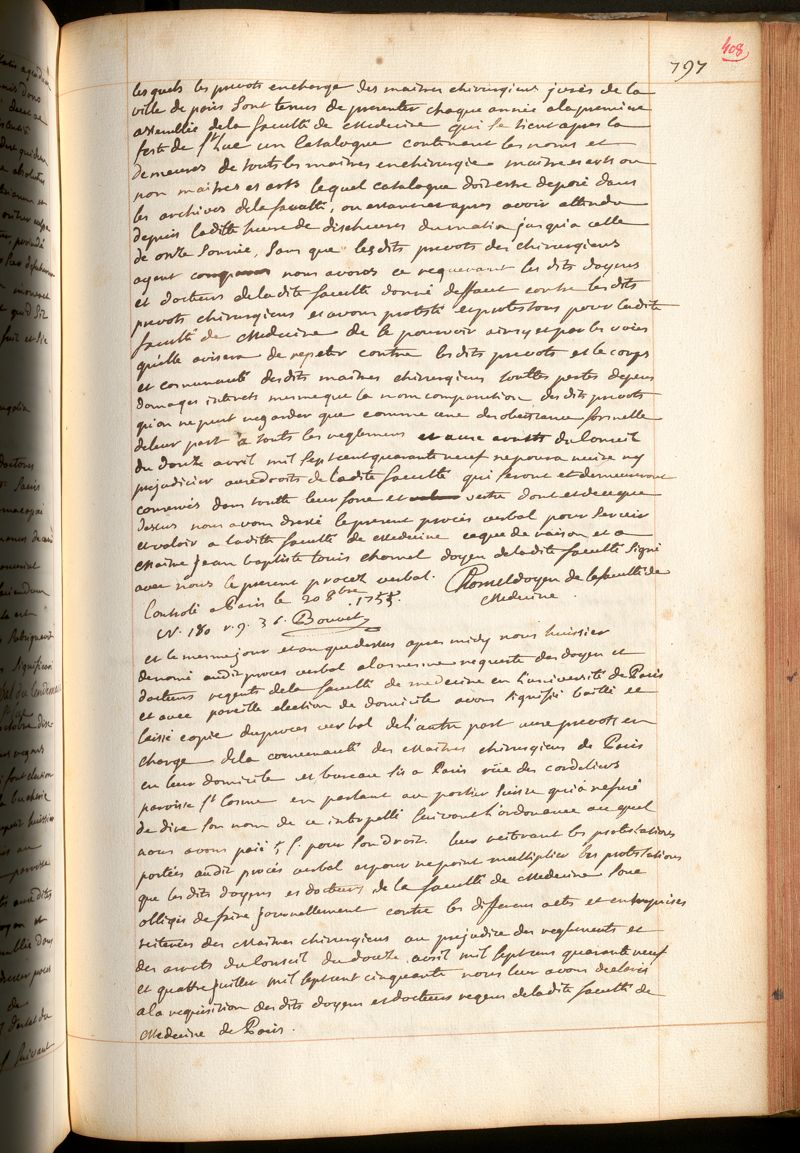 408
797
lesquels les prevots encharge des maitres chirurgiens jurés de la
ville de paris sont tenus de presenter chaque année ala premiere
assemblée dela faculté de Medecine qui se tient apres la
feste de St Luc un Catalogue contenant les noms et
demeures de touts les maitres enchirurgie maitres es arts ou
non maitres es arts lequel catalogue doit estre deposé dans
les archives dela faculté, ou estant et apres avoir attendu
depuis laditte heure de dix heures du matin jusqu'a celle
de onze sonnée, sans que lesdits prevots des chirurgiens
ayent comparu nous avons ce requerant les dits doyens
et docteurs deladite faculté donné deffaut contre lesdits
prevots chirurgiens et avons protesté et protestons pour ladite
faculté de Medecine de se pourvoir ainsy et par les voies
qu'elle avisera de repeter contre lesdits prevots et le corps
et communauté desdits maitres chirurgiens touttes pertes depens
domages interets mesme que la non comparution des dits prevots
qu'on ne peut regarder que comme une desobeissance formelle
deleur part a touts les reglemens et aux arrests du Conseil
du douze avril mil sept cent quarante neuf ne poura nuire ny
prejudicier aux droits de ladite faculté qui seront et demeureront
conservés dans toutte leur force et vertu dont et de ce que
dessus nous avons dressé le present procés verbal pour servir
et valoir a ladite faculté de Medecine ce que de raison et a
Maitre Jean baptiste Louis Chomel doyen deladite faculté signé
avec nous le present procez verbal. Chomel doyen de la faculté de
Medecine.
Controlé a Paris le 20 8bre 1755.
Bouvet
et le mesme jour et an que dessus apres midy nous huissier
denomé audit procés verbal ala mesme requeste des doyen et
docteurs regents dela faculté de medecine en l'université de Paris
et avec pareille election de domicile avons signifié baillé et
laissé copie du procés verbal de l'autre part aux prevots en
charge dela communauté des Maitres chirurgiens de Paris
en leur domicile et bureau sis a Paris rüe des cordeliers
paroisse St Cosme en parlant au portier suisse qui a refusé
de dire son nom de ce interpellé suivant l'ordonance auquel
nous avons paié 5 s. pour son droit. leur reiterant les protestations
portées audit procés verbal et pour ne point multiplier les protestations
que les dits doyens et docteurs de la faculté de Medecine sont
obligés de faire journellement contre les differens actes et entreprises
reiterées des Maitres chirurgiens au prejudice des reglements et
des arrets du Conseil du douze avril mil sept cens quarante neuf
et quatre juillet mil sept cent cinquante nous leur avons declaré
ala requisition des dits doyens et docteurs regens deladite faculté de
Medecine de Paris.